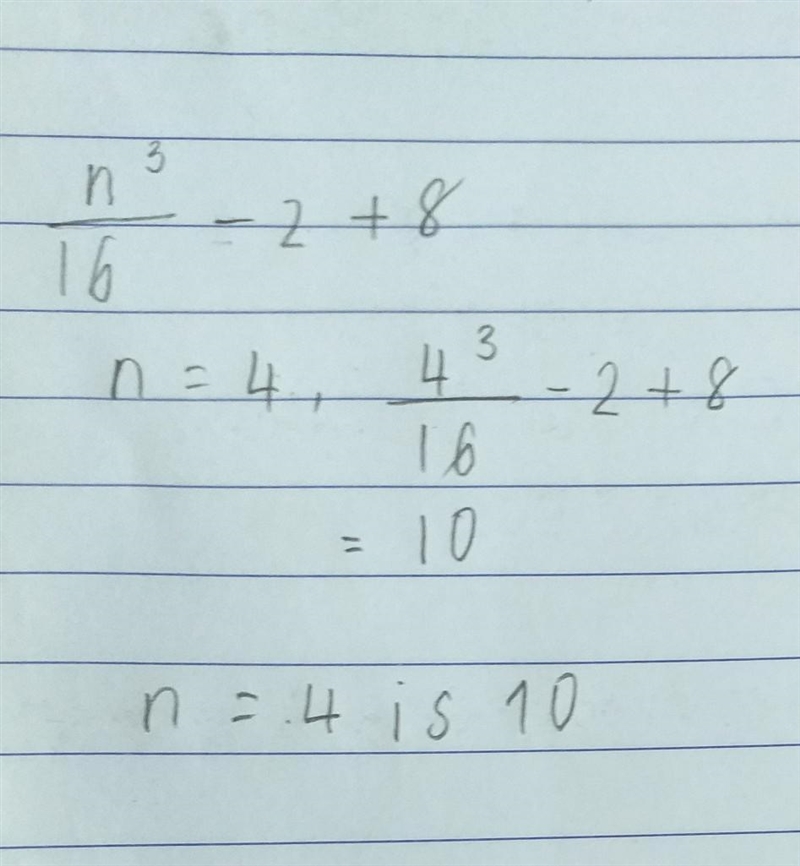 n³/16 - 2 + 8
n = 4, 4³/16 - 2 + 8
= 10
n = 4 is 10